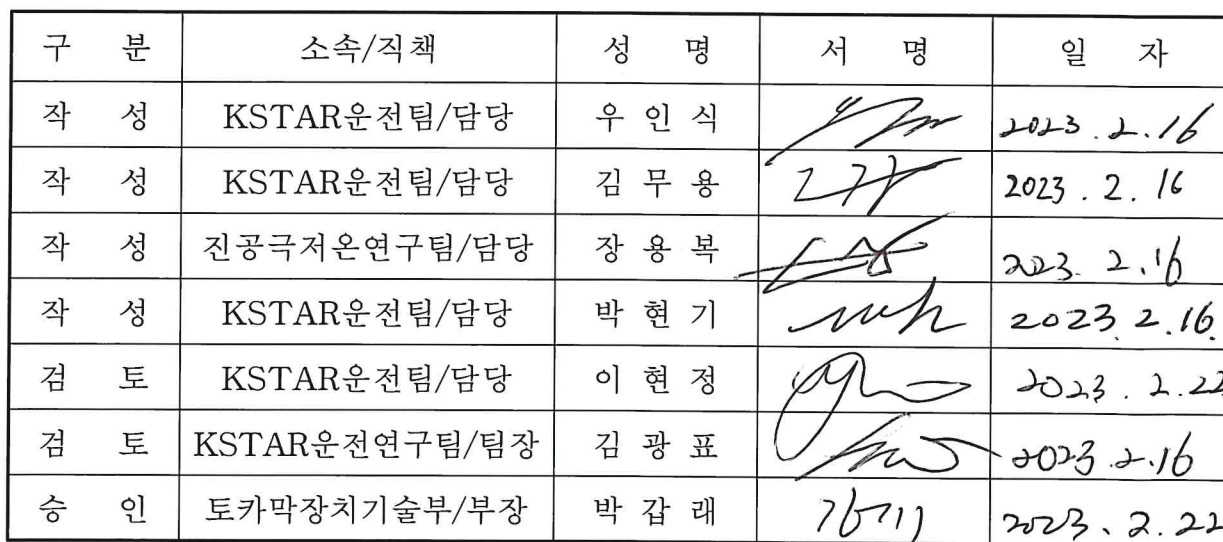 구 분 소속/직책 성 명 서 명 일 자
작 성 KSTAR운전팀/담당 우 인 식 2023. 2. 16
작 성 KSTAR운전팀/담당 김 무 용 2023. 2. 16
작 성 진공극저온연구팀/담당 장 용 복 2023. 2. 16
작 성 KSTAR운전팀/담당 박 현 기 2023. 2. 16.
검 토 KSTAR운전팀/담당 이 현 정 2023. 2. 22
검 토 KSTAR운전연구팀/팀장 김 광 표 2023. 2. 16
승 인 토카막장치기술부/부장 박 갑 래 2023. 2. 22